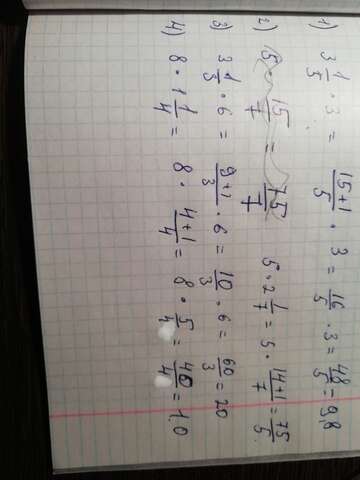 1) 3 1/5 · 3 = 15+1/5 · 3 = 16/5 · 3 = 48/5 = 9,8
2) 5 · 15/7 = 75/7 5 · 2 1/7 = 5 · 14+1/7 = 75/5
3) 3 1/3 · 6 = 9+1/3 · 6 = 10/3 · 6 = 60/3 = 20
4) 8 · 1 1/4 = 8 · 4+1/4 = 8 · 5/4 = 40/4 = 10